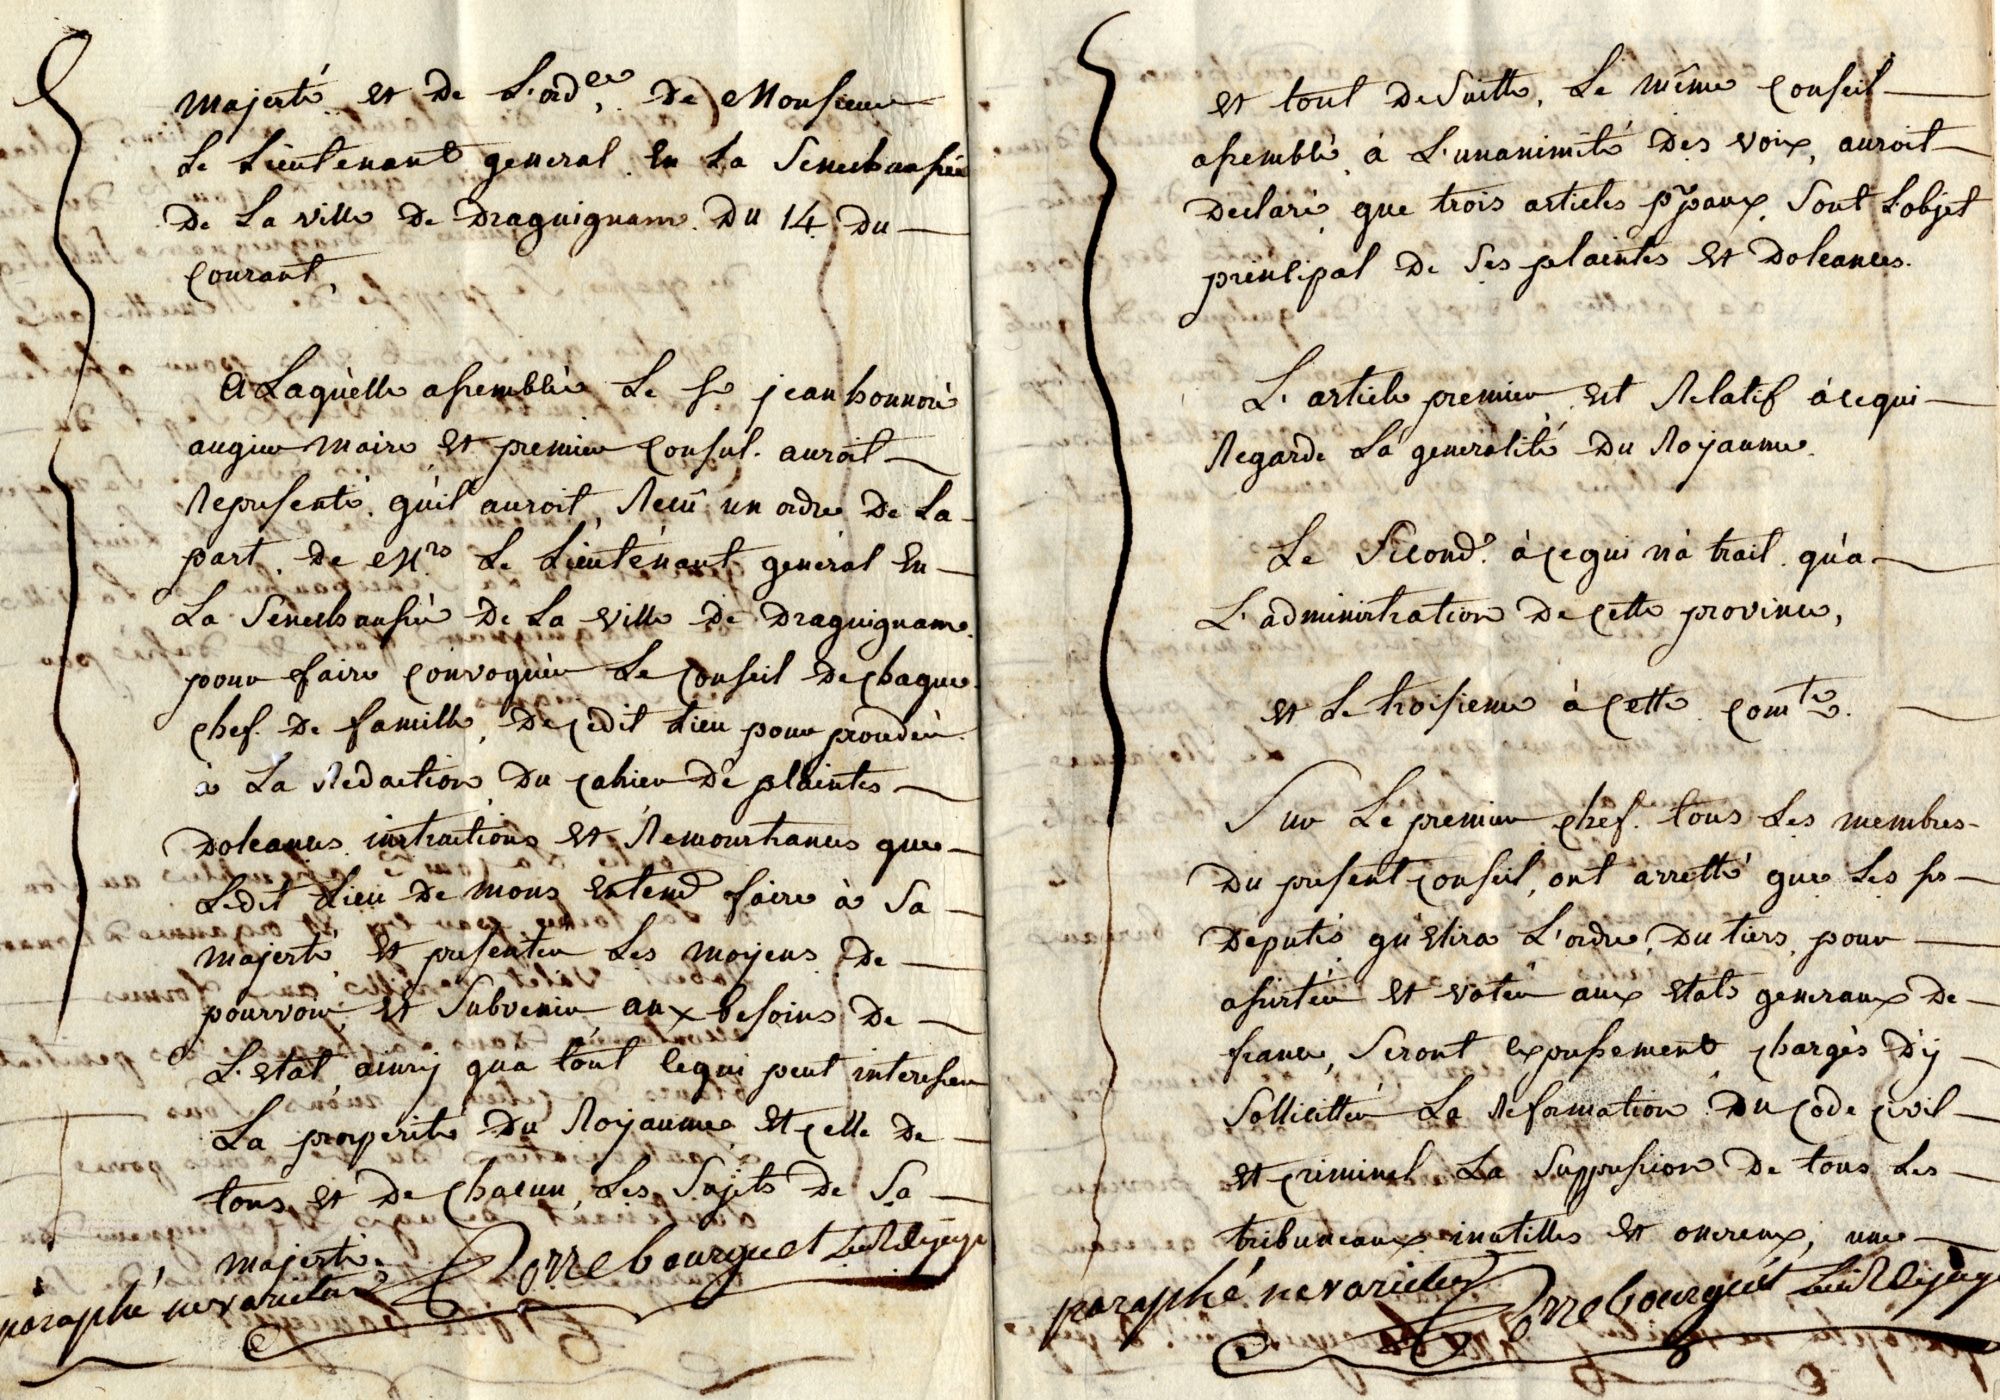 majesté et de L'ord.ce De Monsieur
Le Lieutenant general En La Senechaussée
De La ville De Draguignam. Du 14 Du
Courant,
A Laquelle assemblée Le Sr jean honnoré
augier maire Et premier Consul. auroit
Représenté, qu'il auroit, Recu un ordre De La
part. De Mrs Le Lieutenant general En
La Senechaussée De La ville De Draguignam.
pour faire Convoquér Le Conseil De Chaque
Chef. De famille, De Cedit Lieu pour procedér
à La Redaction Du Cahier De plaintes
Doleances. instructions Et Remourtrances que
Ledit Lieu De mons Entend faire à Sa
majesté, Et presenter Les moyens De
pourvoir, Et Subvenir aux besoins De
L'Etat, ainsy qua tout Cequi peut interesser
La prosperité Du Royaume Et Celle De
tous, Et De Chacun, Les Sujets De Sa
majesté.
paraphé ne varietur Dorrebourguet Lieut De juge
Et tout De Suitte, Le même Conseil
assemblé, à L'unanimité Des voix, auroit
Declaré, que trois articles ppaux, Sont Lobjet
principal De Ses plaintes Et Doleances.
L'article premier Est Relatif àcequi
Regarde La generalité Du Royaume.
Le Second. àcequi n'a trait qu'a
L'administration De Cette province,
Et Le troisieme à Cette Com.té
Sur Le premier Chef. tous Les membres
Du present Conseil, ont arretté que Les srs
Deputés qu'Elira L'ordre, Du tiers, pour
assistér Et votér aux Etats generaux De
france, Seront Expressement Chargés D'y
Sollicittér La Reformation Du Code Civil
Et Criminel La Suppression De tous Les
tribuneaux inutilles Et onereux, une
paraphé ne varietur Dorrebourguet Lieut De juge